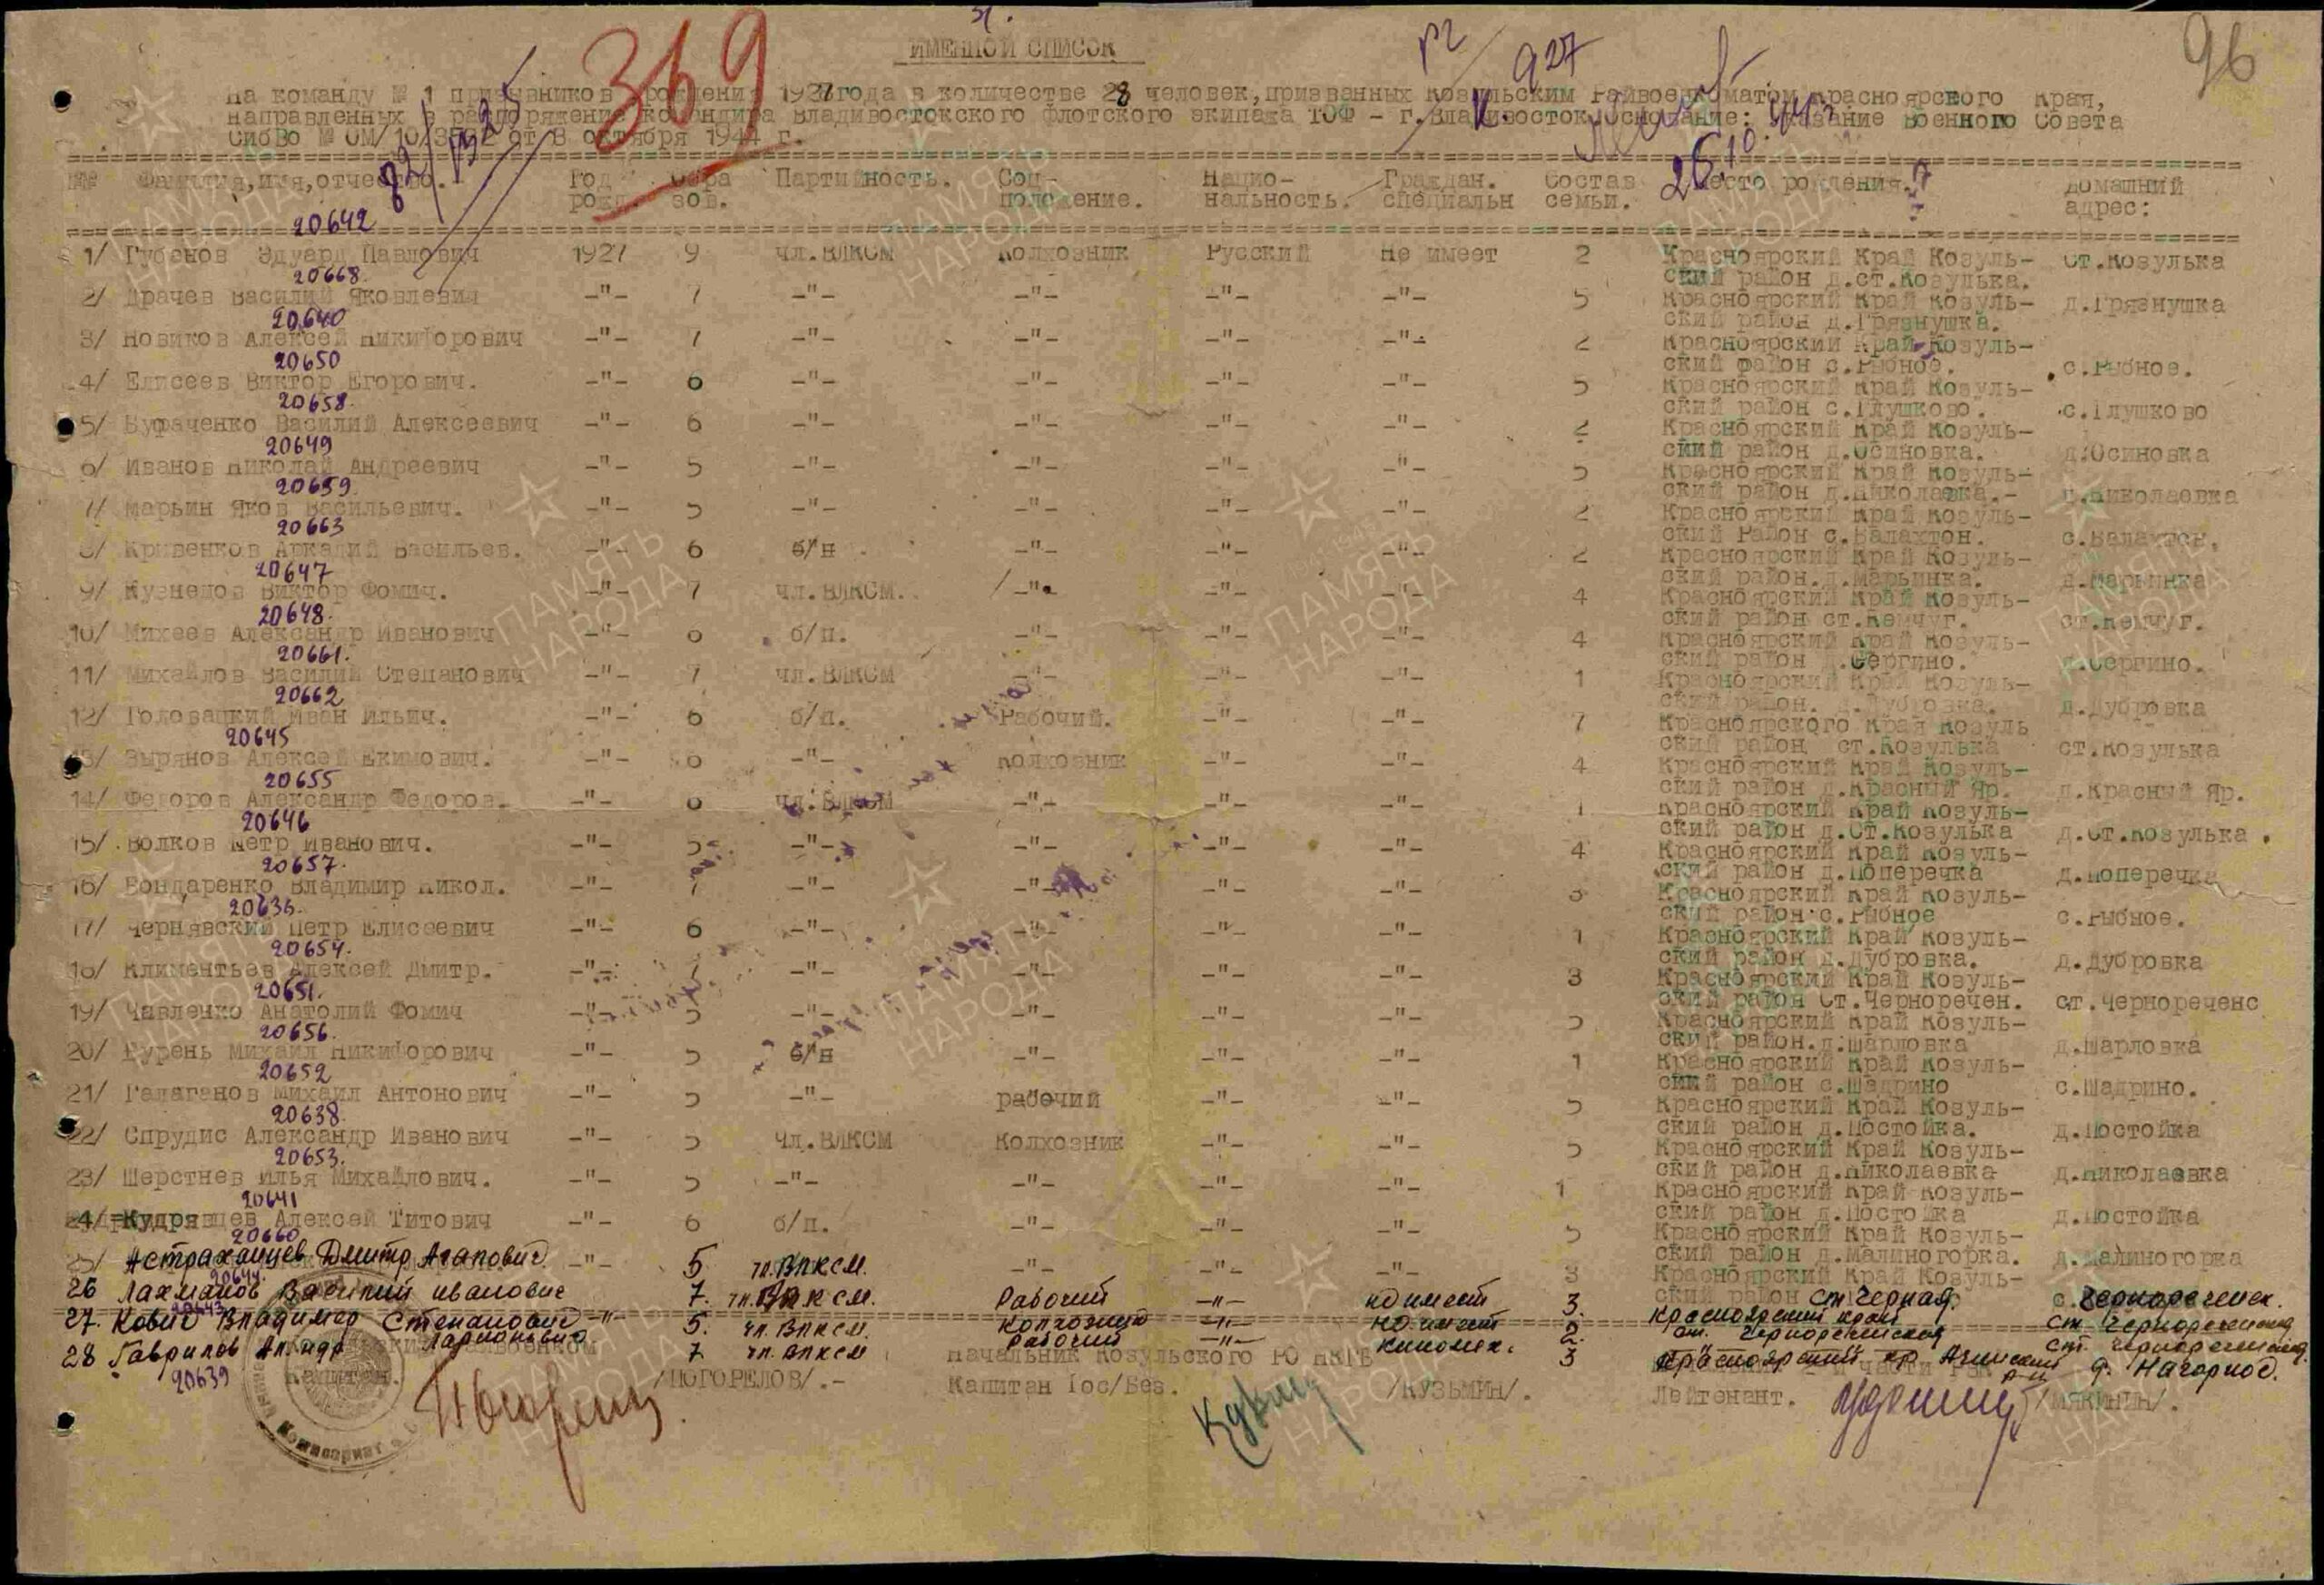 96
ИМЕННОЙ СПИСОК
369
927
На команду № 1 призывников рождения 1927 года в количестве 28 человек, призванных Козульским Райвоенкоматом Красноярского Края,
направленных в распоряжение командира Владивостокского флотского экипажа ТОФ - г.Владивосток. Основание: Указание Военного Совета
СибВо № ОМ/10/ от 8 октября 1944 г.
№№ Фамилия, имя, отчество. Год рожд. Обра зов. Партийность. Соц- положение. Нацио- нальность. Граждан. специальн Состав семьи. Место рождения. Домашний адрес:
20642
1/ Губенов Эдуард Павлович 1927 9 чл.ВЛКСМ Колхозник Русский Не имеет 2 Красноярский Край Козуль- ст.Козулька
20668 ский район д.ст.Козулька.
2/ Драчев Василий Яковлевич -"- 7 -"- -"- -"- -"- 5 Красноярский Край Козуль- д.Грязнушка
20640 ский район д.Грязнушка.
3/ Новиков Алексей Никифорович -"- 7 -"- -"- -"- -"- 2 Красноярский Край Козуль-
20650 ский район с.Рыбное. с.Рыбное.
4/ Елисеев Виктор Егорович. -"- 6 -"- -"- -"- -"- 5 Красноярский Край Козуль-
20658 ский район с.Глушково. с.Глушково
5/ Бураченко Василий Алексеевич -"- 6 -"- -"- -"- -"- 2 Красноярский Край Козуль-
20649 ский район д.Осиновка. д.Осиновка
6/ Иванов Николай Андреевич -"- 5 -"- -"- -"- -"- 5 Красноярский Край Козуль-
20659 ский район д.Николаевка.- д.Николаевка
7/ Марьин Яков Васильевич. -"- 5 -"- -"- -"- -"- 2 Красноярский Край Козуль-
20663 ский Район с.Балахтон. с.Балахтон.
8/ Кривенков Аркадий Васильев. -"- 6 б/п -"- -"- -"- 2 Красноярский Край Козуль-
20647 ский район.д.Марьинка. д.Марьинка
9/ Кузнецов Виктор Фомич. -"- 7 чл.ВЛКСМ. -"- -"- -"- 4 Красноярский Край Козуль-
20648. ский район ст.Кемчуг. ст.Кемчуг.
10/ Михеев Александр Иванович -"- 6 б/п. -"- -"- -"- 4 Красноярский Край Козуль-
20661. ский район д.Сергино. д.Сергино.
11/ Михайлов Василий Степанович -"- 7 чл.ВЛКСМ -"- -"- -"- 1 Красноярский Край Козуль-
20662 ский район. д.Дубровка. д.Дубровка
12/ Головацкий Иван Ильич. -"- 6 б/п. Рабочий. -"- -"- 7 Красноярского Края Козуль
20645 ский район ст.Козулька ст.Козулька
13/ Зырянов Алексей Екимович. -"- 6 -"- колхозник -"- -"- 4 Красноярский Край Козуль-
20655 ский район д.Красный Яр. д.Красный Яр.
14/ Федоров Александр Федоров. -"- 6 чл.ВЛКСМ -"- -"- -"- 1 Красноярский Край Козуль-
20646 ский район д.Ст.Козулька д.ст.Козулька.
15/ Волков Петр Иванович. -"- 5 -"- -"- -"- -"- 4 Красноярский Край Козуль-
20657. ский район д.Поперечка д.Поперечка
16/ Бондаренко Владимир Никол. -"- 7 -"- -"- -"- -"- 3 Красноярский Край Козуль-
20636. ский район с.Рыбное с.Рыбное.
17/ Чернявский Петр Елисеевич -"- 6 -"- -"- -"- -"- 1 Красноярский Край Козуль-
20654. ский район д.Дубровка. д.Дубровка
18/ Климентьев Алексей Дмитр. -"- 7 -"- -"- -"- -"- 3 Красноярский Край Козуль-
20651. ский район Ст.Черноречен. ст.Чернореченс
19/ Чавленко Анатолий Фомич -"- 5 -"- -"- -"- -"- 5 Красноярский Край Козуль-
20656. ский район.д.Шарловка д.Шарловка
20/ Курень Михаил Никифорович -"- 5 б/п -"- -"- -"- 1 Красноярский Край Козуль-
20652 ский район с.Шадрино с.Шадрино.
21/ Галаганов Михаил Антонович -"- 5 -"- рабочий -"- -"- 5 Красноярский Край Козуль-
20638. ский район д.Постойка. д.Постойка
22/ Спрудис Александр Иванович -"- 5 чл.ВЛКСМ Колхозник -"- -"- 5 Красноярский Край Козуль-
20653. ский район д.Николаевка д.Николаевка
23/ Шерстнев Илья Михайлович. -"- 5 -"- -"- -"- -"- 1 Красноярский Край Козуль-
20641 ский район д.Постойка д.Постойка
24/ Кудрявцев Алексей Титович -"- 6 б/п. -"- -"- -"- 5 Красноярский Край Козуль-
20660 ский район д.Малиногорка. д.Малиногорка
25/ Астраханцев Дмитр Агапович -"- 5 чл.ВЛКСМ. -"- -"- -"- 3 Красноярский Край Козуль-
20644. ский район ст.Черная. Чернореченск.
26 Лахманов Василий иванович 7. чл.ВЛКСМ. Рабочий -"- не имеет 3. Красноярский край
20643 ст. Чернореченская ст. Чернореченская
27. Кович Владимер Степанович -"- 5. чл.ВЛКСМ. Колхозник -"- не имеет 2. ст. Чернореченская
28 Гаврилов Ал-ндр Ларионович 7 чл.ВЛКСМ Рабочий -"- Киномех. 3 Красноярский кр Ачинский р-н д. Нагорное.
20639
Капитан. /ПОГОРЕЛОВ/.-
Начальник Козульского РО НКГБ
Капитан Гос/Без. /КУЗЬМИН/.
Лейтенант. /МЯКИНИН/.
ПАМЯТЬ НАРОДА